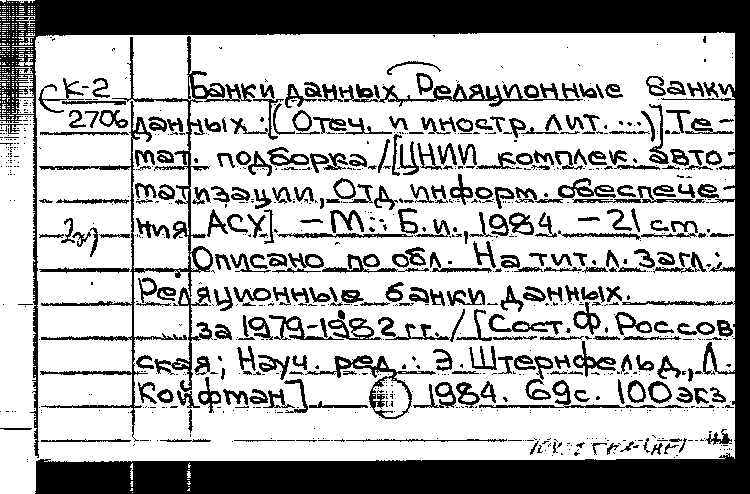 К-2
2706
Банки данных, Реляционные банки
данных : [(Отеч. и иностр. лит. ...)] Те-
мат. подборка / [ЦНИИ комплек. авто-
матизации, Отд. информ. обеспече-
ния АСУ]. - М.: Б.и., 1984. - 21 см.
Описано по обл. На тит. л. загл.:
Реляционные банки данных.
за 1979-1982 гг. / [Сост. Ф. Россов-
ская; Науч. ред.: Э. Штернфельд, Л.
Койфман]. 1984. 69с. 100 экз.